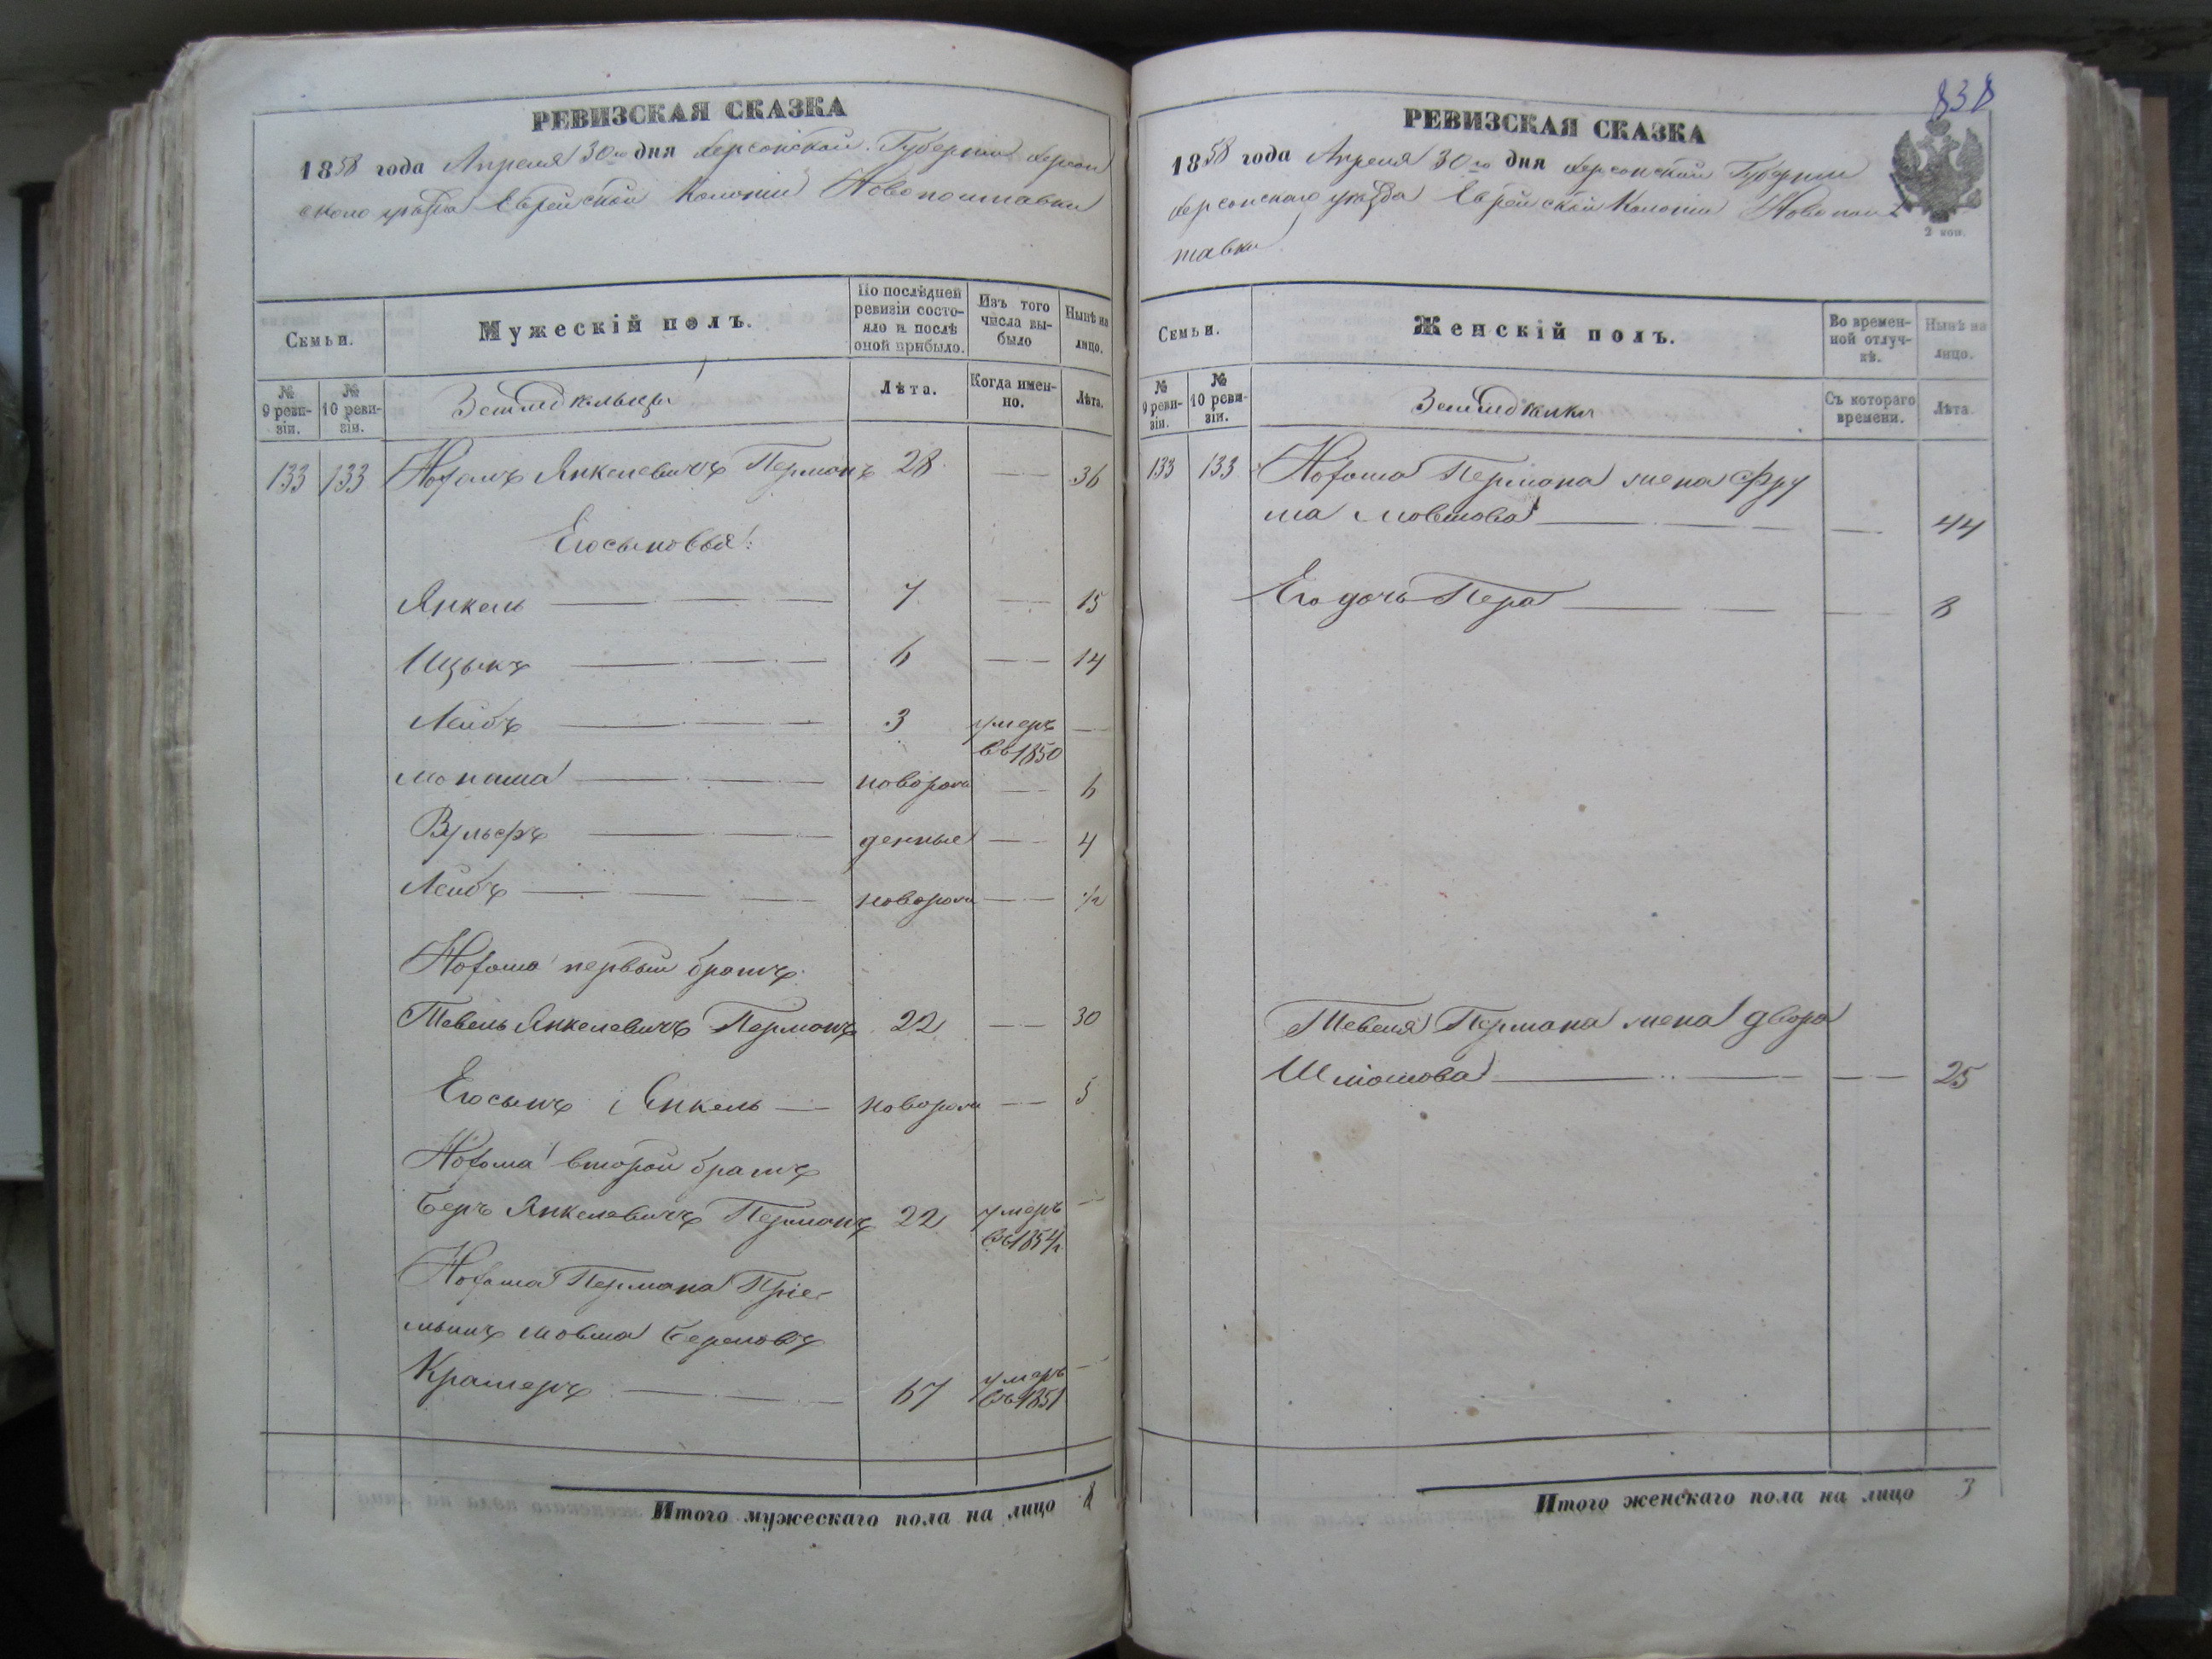 РЕВИЗСКАЯ СКАЗКА
1858 года Апреля 30го дня Херсонской Губерніи Херсон
скаго уѣзда Еврейской Колоніи Новополтавки
Семьи.
Мужескій полъ.
По послѣдней ревизіи состояло и послѣ оной прибыло.
Изъ того числа выбыло
Нынѣ на лицо.
№ 9 ревизіи.
№ 10 ревизіи.
Земледѣльцы
Лѣта.
Когда именно.
Лѣта.
133 133 Нотомъ Янкелевичъ Перманъ 28 — 36
Его сыновья:
Янкель — 7 — 15
Ицыкъ — 6 — 14
Лейбъ — 3 умеръ —
въ 1850
Монаша — новорож — 6
Вульфъ — денные — 4
Лейбъ — новорож — 1/2
Нотома первый братъ:
Тевель Янкелевичъ Перманъ 22 — 30
Его сынъ Янкель — новорож — 5
Нотома второй братъ
Беръ Янкелевичъ Перманъ 22 умеръ —
въ 1854
Нотома Пермана Пріе-
мышъ Мовша Берковъ
Крамеръ — 67 умеръ —
въ 1851
Итого мужескаго пола на лицо 8
838
РЕВИЗСКАЯ СКАЗКА
1858 года Апреля 30го дня Херсонской Губерніи
Херсонскаго уѣзда Еврейской Колоніи Новопол
тавки
2 коп.
Семьи.
Женскій полъ.
Во временной отлучкѣ.
Нынѣ на лицо.
№ 9 ревизіи.
№ 10 ревизіи.
Земледѣлки
Съ котораго времени.
Лѣта.
133 133 Нотома Пермана жена Фру
ма Мовшова — — 44
Его дочь Пера — — 8
Тевеля Пермана жена Двора
Шміомова — — 25
Итого женскаго пола на лицо 3